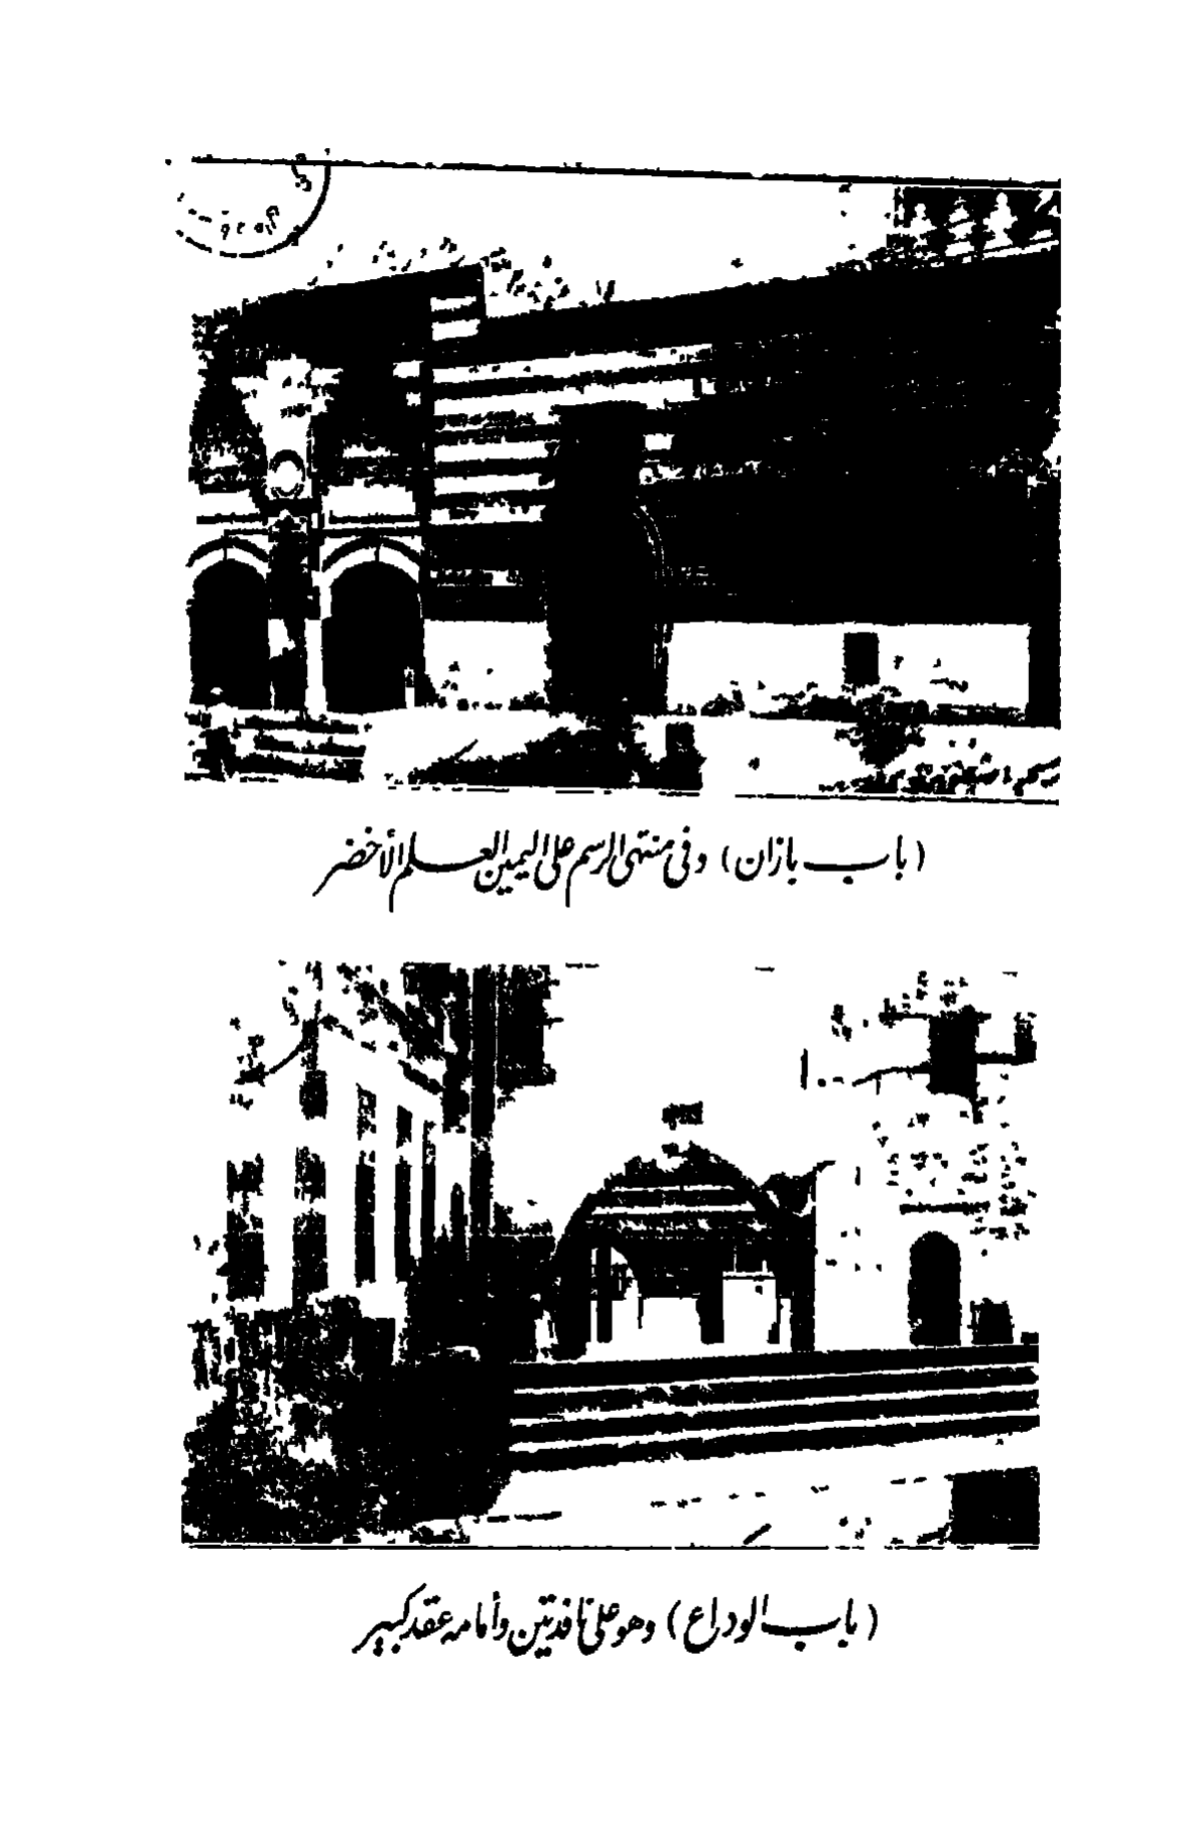 ( باب بازان ) وفى منتهى الرسم على اليمين العلم الأخضر
( باب الوداع ) وهو على نافذتين وأمامه عقد كبير